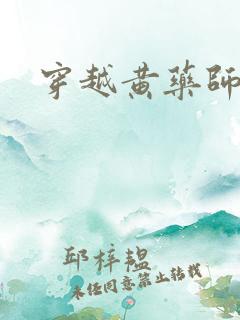 穿越黄药师
邱梓韫
未经同意禁止转载